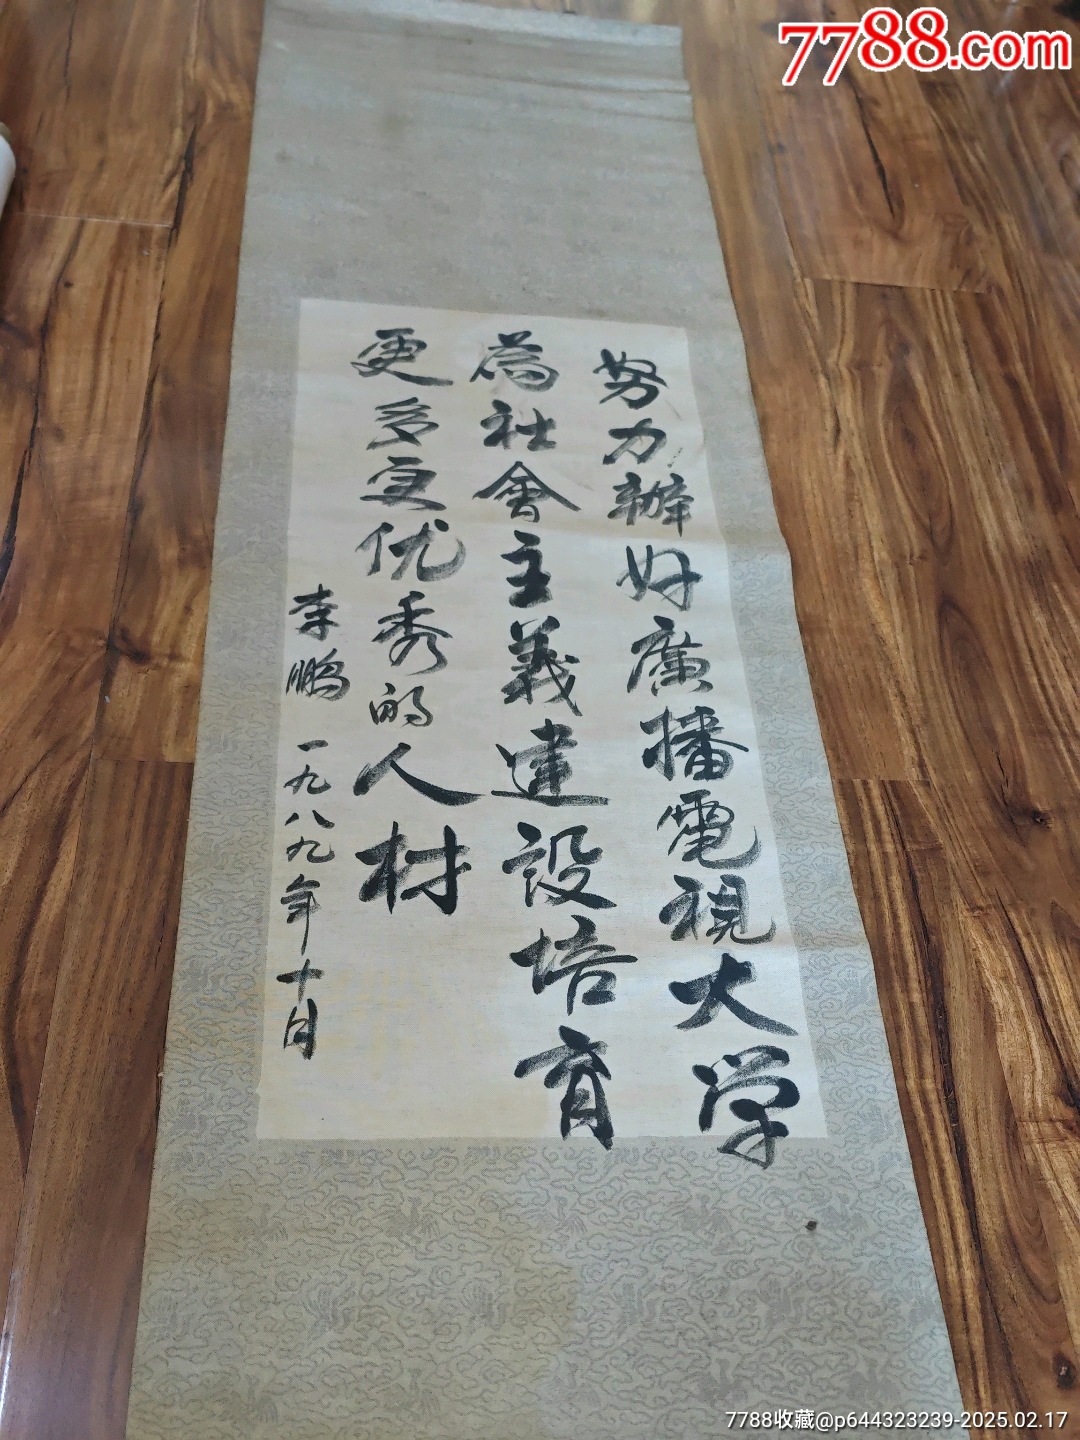 7788.com
努力辦好廣播電視大学
為社會主義建設培育
更多更优秀的人材
李鹏 一九八九年十月
7788收藏@p644323239-2025.02.17